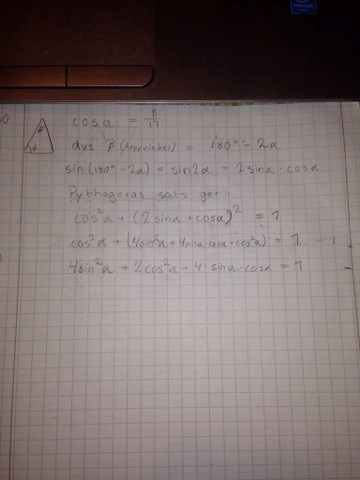 cos a = 8/17
dvs β (toppvinkel) = 180° - 2a
sin (180° - 2a) = sin 2a = 2 sin a · cos a
Pythagoras sats ger:
cos²a + (2 sin a + cos a)² = 1
cos²a + (4sin²a + 4sina·cosa + cos²a) = 1
4sin²a + 2cos²a + 4·sina·cosa = 1